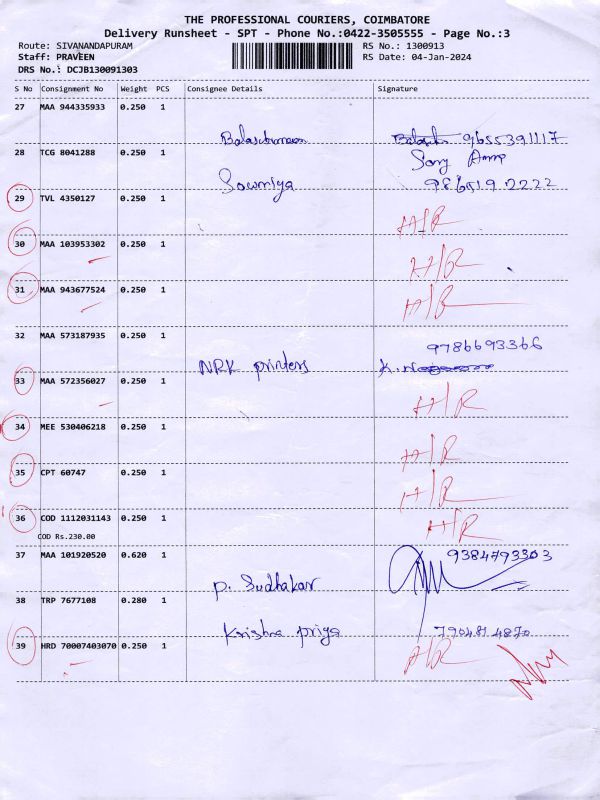 THE PROFESSIONAL COURIERS, COIMBATORE
Delivery Runsheet - SPT - Phone No.:0422-3505555 - Page No.:3
Route: SIVANANDAPURAM RS No.: 1300913
Staff: PRAVEEN RS Date: 04-Jan-2024
DRS No.: DCJB130091303
S No Consignment No Weight PCS Consignee Details Signature
27 MAA 944335933 0.250 1
9655391117
28 TCG 8041288 0.250 1
Sowmiya
29 TVL 4350127 0.250 1
H/R
30 MAA 103953302 0.250 1
H/R
31 MAA 943677524 0.250 1
H/R
32 MAA 573187935 0.250 1
9786693366
NRK printers
33 MAA 572356027 0.250 1
H/R
34 MEE 530406218 0.250 1
H/R
35 CPT 60747 0.250 1
H/R
36 COD 1112031143 0.250 1 H/R
COD Rs.230.00
37 MAA 101920520 0.620 1 9384793303
P. Sudhakar
38 TRP 7677108 0.280 1
Krishna priya 790481 4870
39 HRD 70007403070 0.250 1 H/R